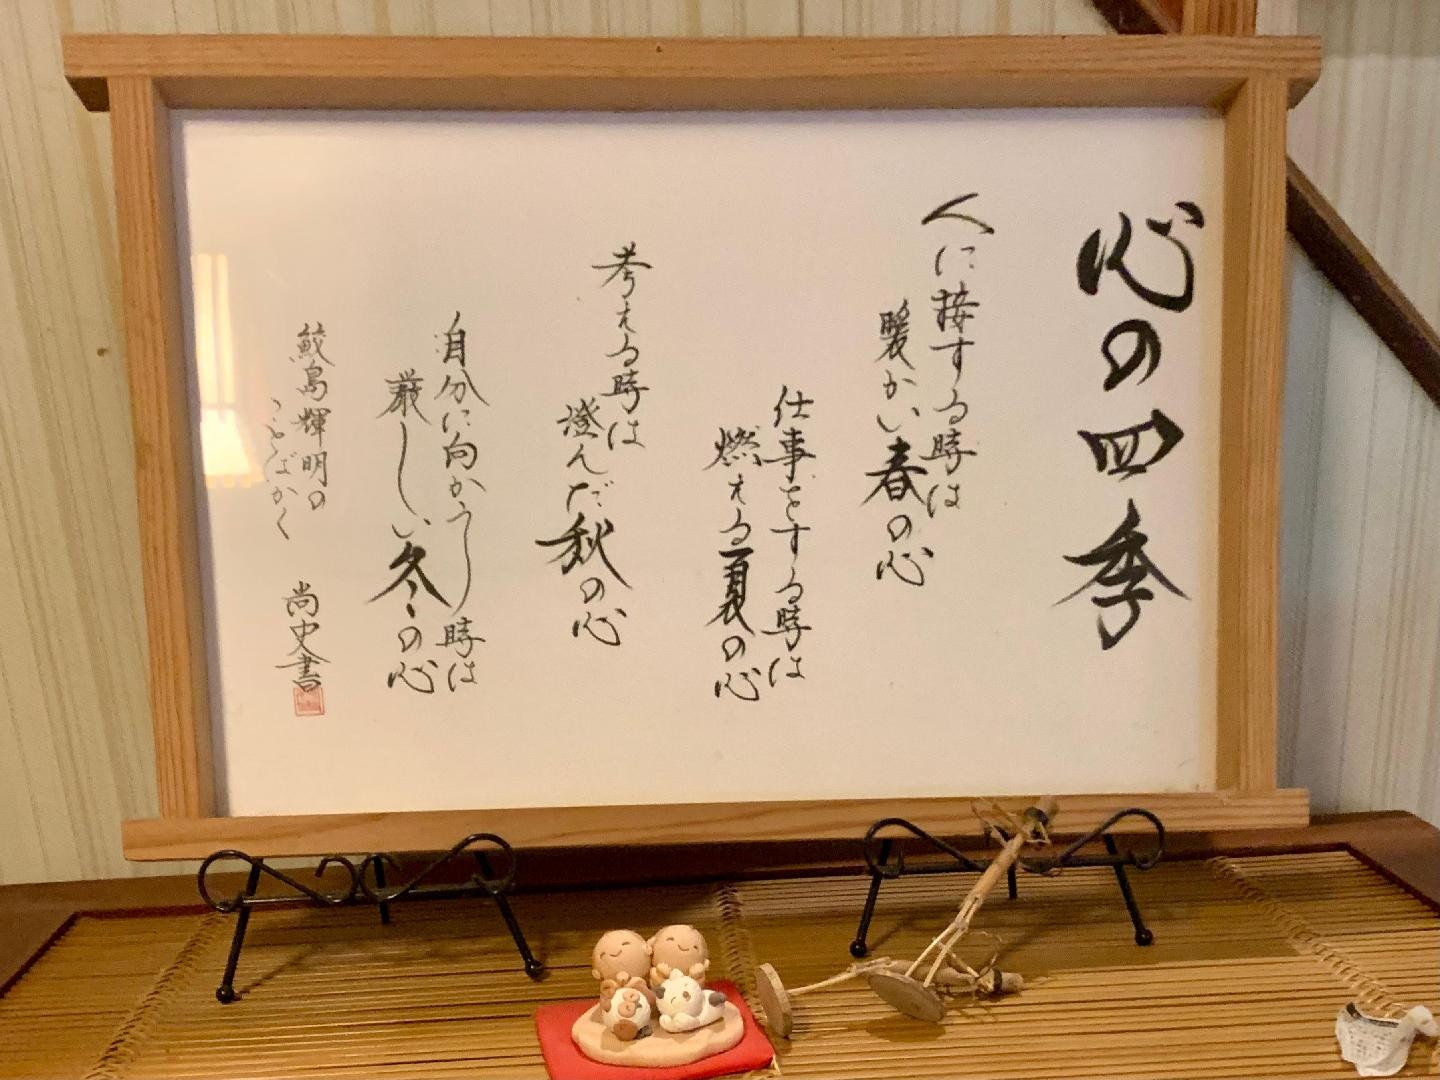 心の四季
人に接する時は
暖かい春の心
仕事をする時は
燃える夏の心
考える時は
澄んだ秋の心
自分に向かう時は
厳しい冬の心
鮫島輝明の
ことばかく
尚史書